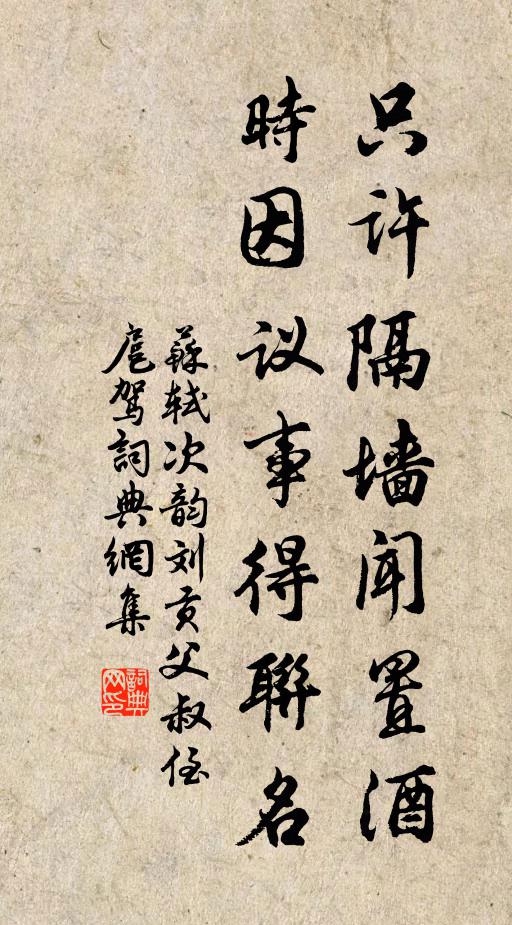 只许隔墙闻置酒
時因议事得聯名
蘇轼次韵刘贡父叔侄
扈驾詞典網集
詞典
网印